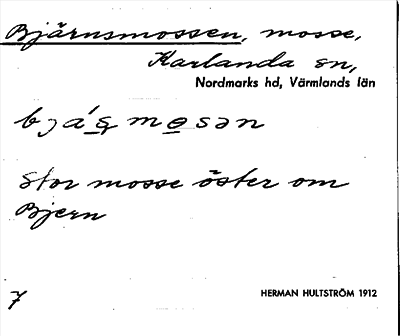 Bjärnsmossen, mosse,
Karlanda sn,
Nordmarks hd, Värmlands län
Stor mosse öster om
Bjern
7
HERMAN HULTSTRÖM 1912